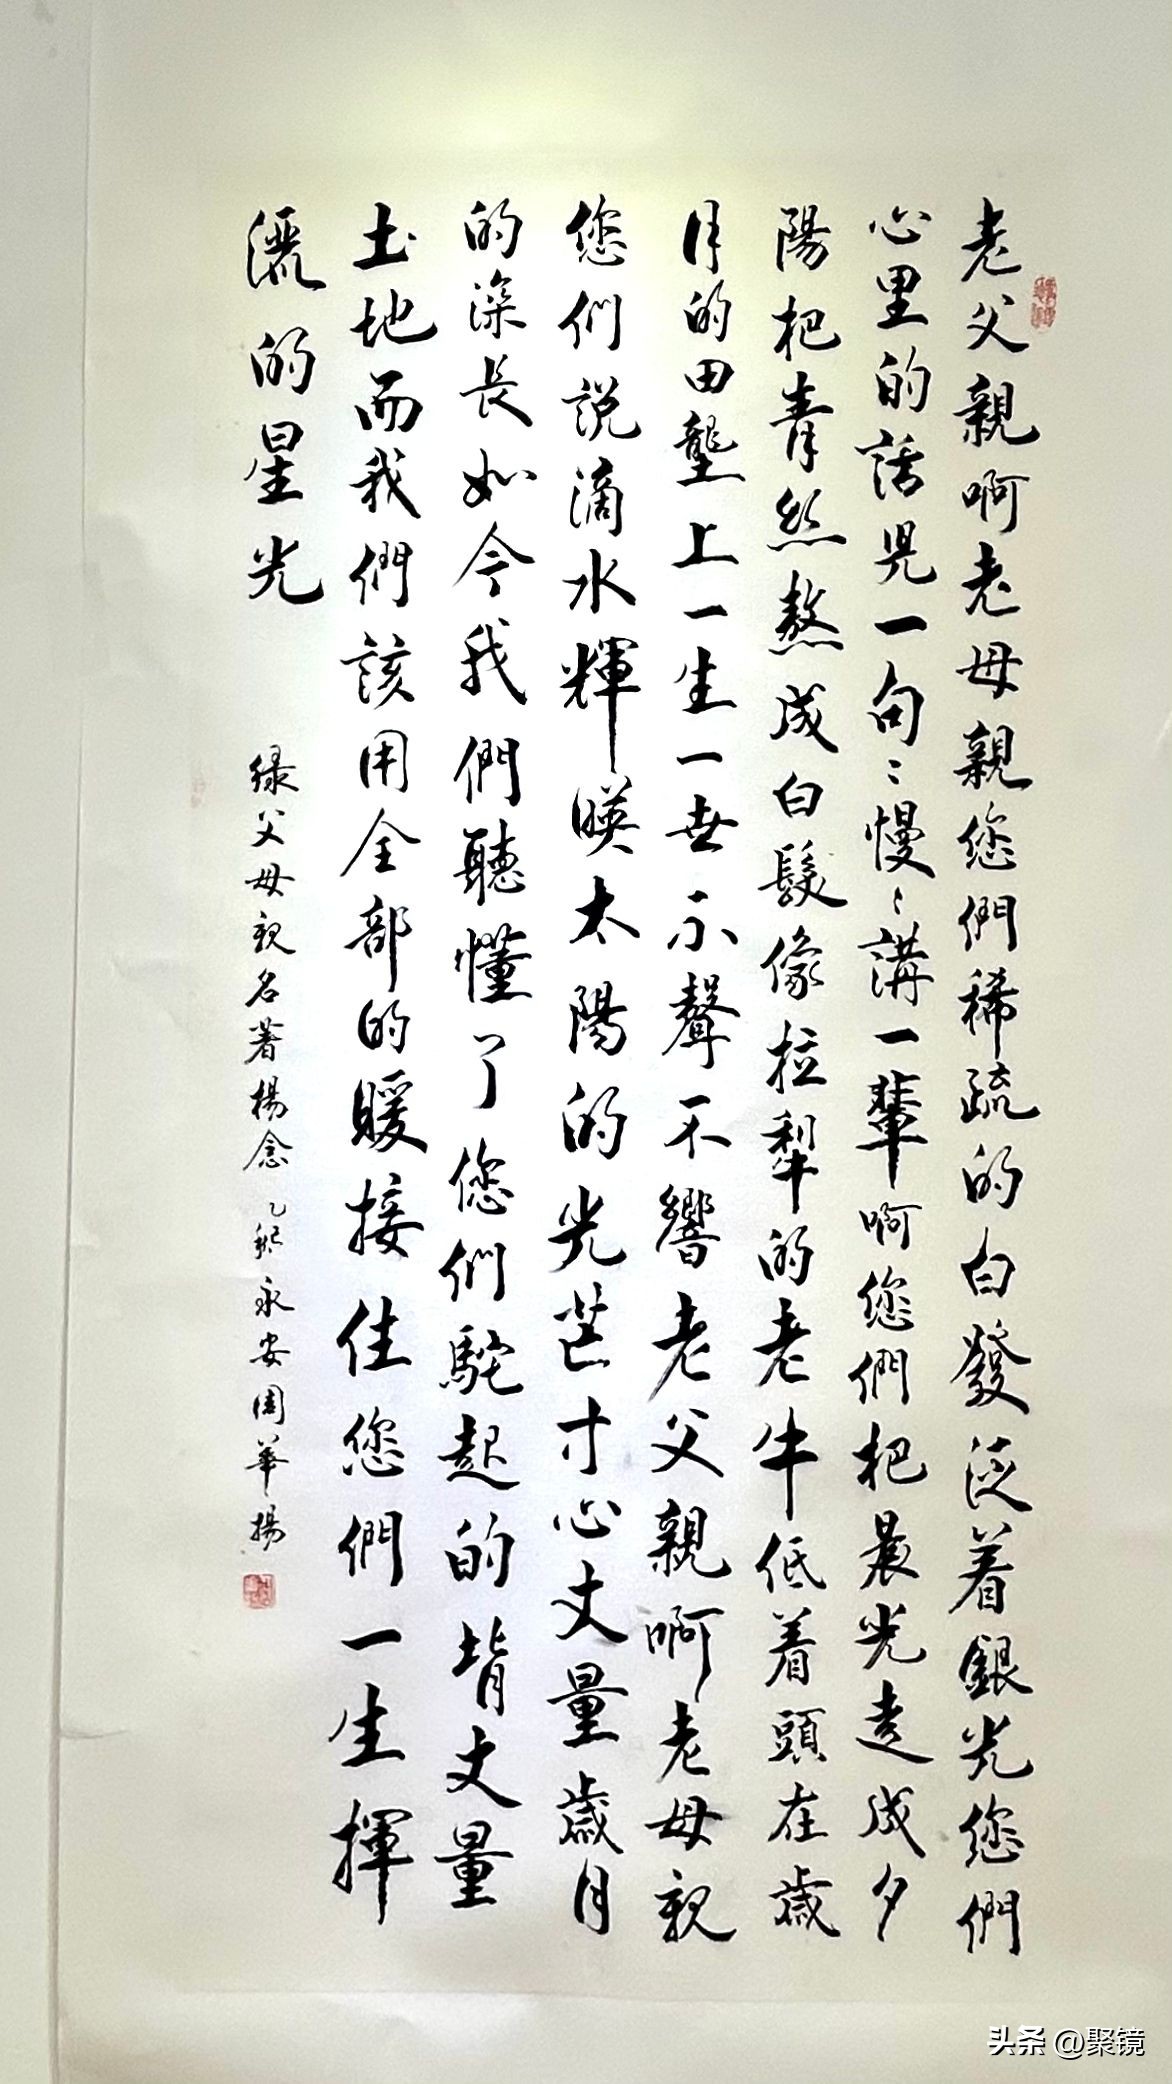 老父親啊老母親您們稀疏的白發泛着銀光您們
心里的話児一句〻慢〻講一輩啊您們把晨光走成夕
陽把青絲熬成白髮像拉犁的老牛低着頭在歲
月的田壟上一生一世不聲不響老父親啊老母親
您們説滴水輝映太陽的光芒寸心丈量歲月
的深長如今我們聽懂了您們駝起的背丈量
土地而我們該用全部的暖接住您們一生揮
灑的星光
绿父母親名著楊念 乙 永安周華揚
头条 @聚镜